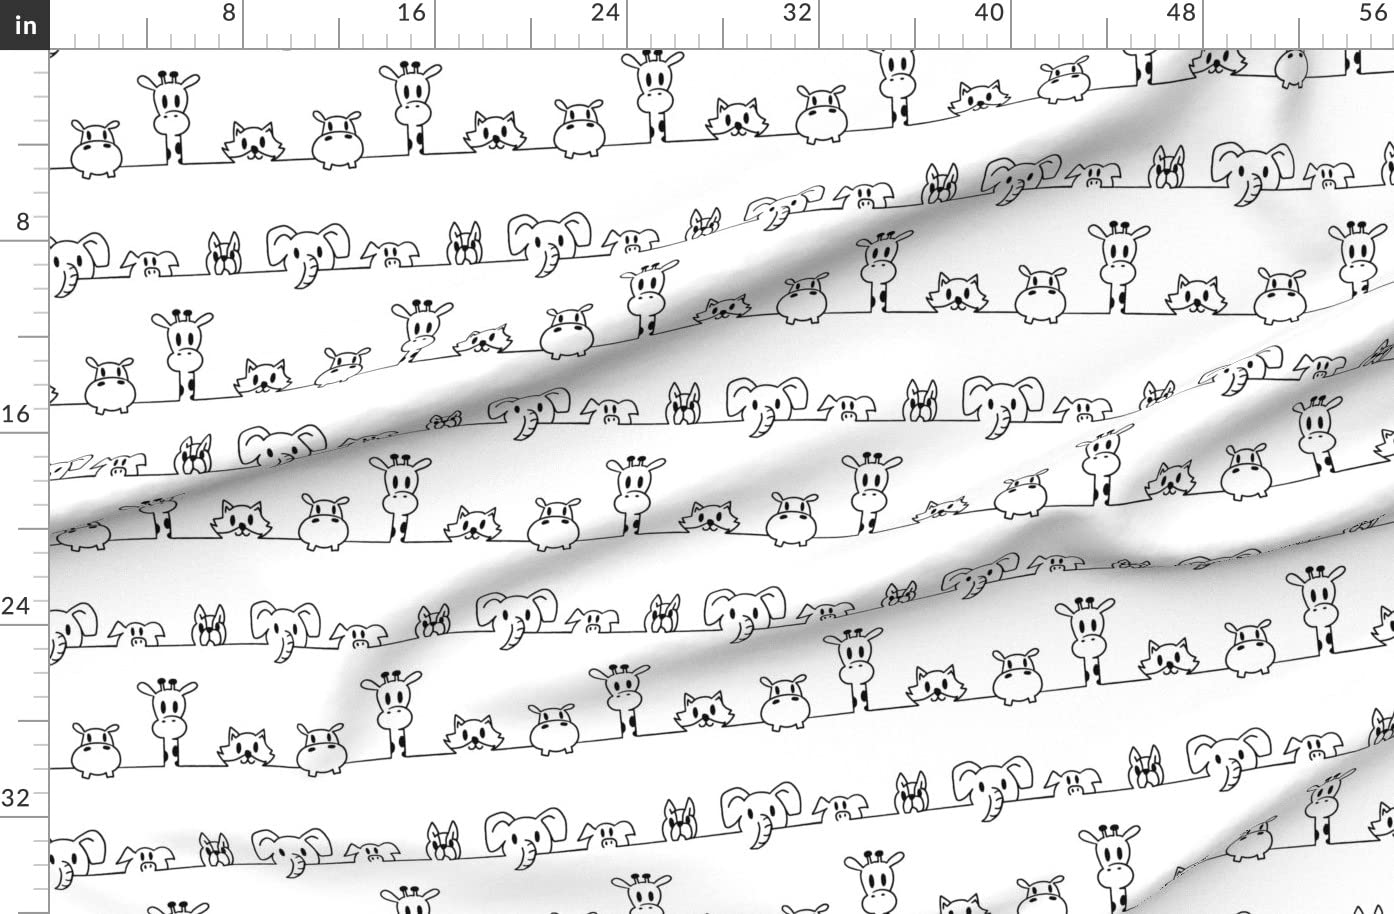 in
8 16 24 32 40 48 56
8
16
24
32